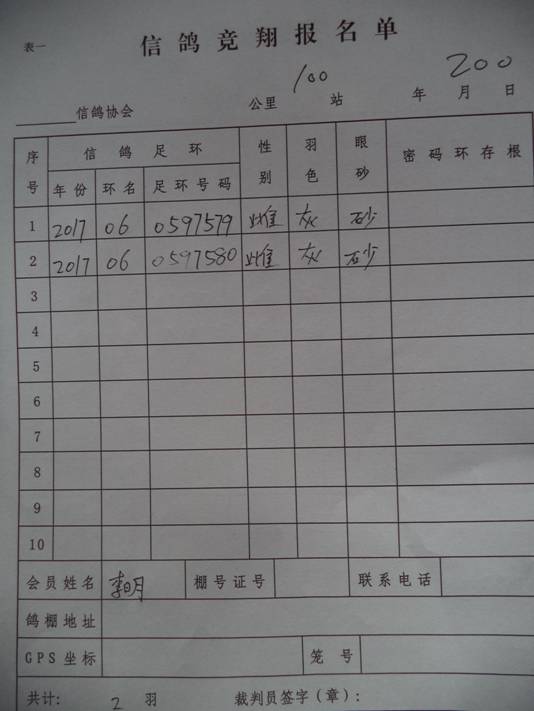 表一
信鸽竞翔报名单
100 200
信鸽协会 公里 站 年 月 日
序号 信鸽足环 性别 羽色 眼砂 密码环存根
年份 环名 足环号码
1 2017 06 0597579 雌 灰 砂
2 2017 06 0597580 雌 灰 砂
3
4
5
6
7
8
9
10
会员姓名 李明 棚号证号 联系电话
鸽棚地址
GPS坐标 笼号
共计: 2 羽 裁判员签字(章):